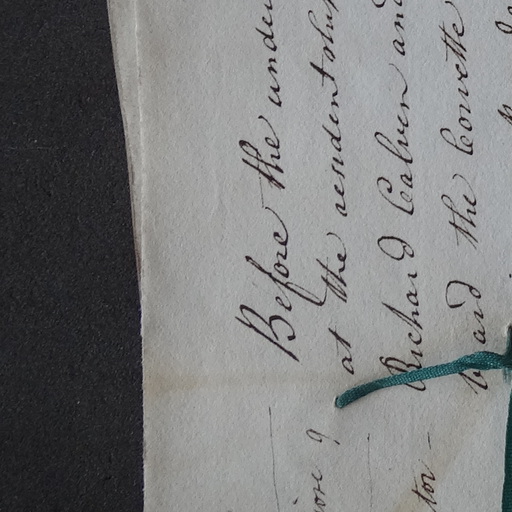 Before the unde
at the residentship
Richard Calver and
board the Corvette
tor